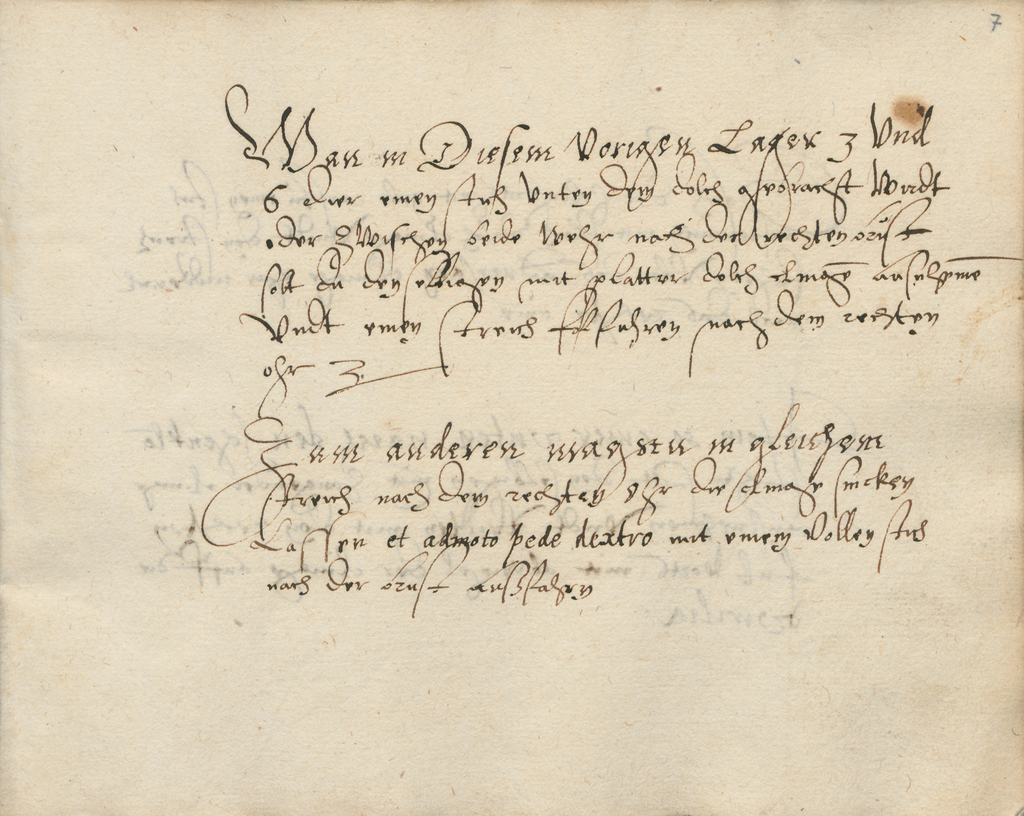 7
Wan in Diesem Vorigen Lager 3 Vnd
6 dier einen stich Vnten dem dolch gebracht Wirdt
oder Zwischen beide Wehr nach der rechten brust
solt du denselbigen mit platter dolch
Vndt einen streich nach dem rechten
ohr 3
Zum anderen magstu in gleichem
streich nach dem rechten Ohr die sincken
Lassen et admoto pede dextro mit einem Vollen stich
nach der brust außfahren